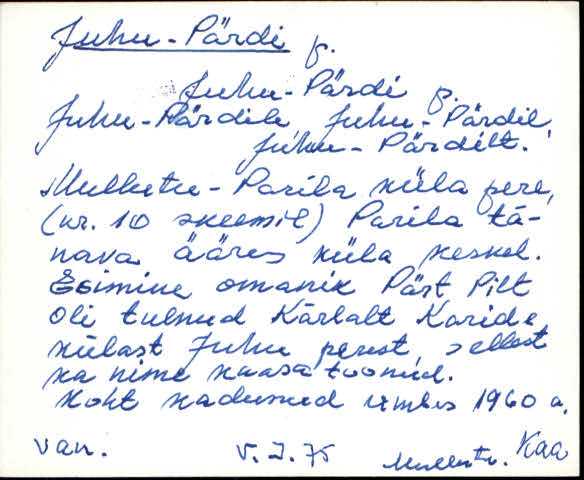 Juhu-Pärdi p.
Juhu-Pärdi p.
Juhu-Pärdile Juhu-Pärdil,
Juhu-Pärdilt.
Mullutu-Parila küla pere,
(nr. 10 skeemil) Parila tä-
nava ääres küla keskel.
Esimine omanik Pärt Pilt
oli tulnud Kärlalt Karida
külast Juhu perest, sellest
ka nime kaasa toonud.
Koht kadunud umbes 1960 a.
van. V. J. 75 Mullutu. Kaa